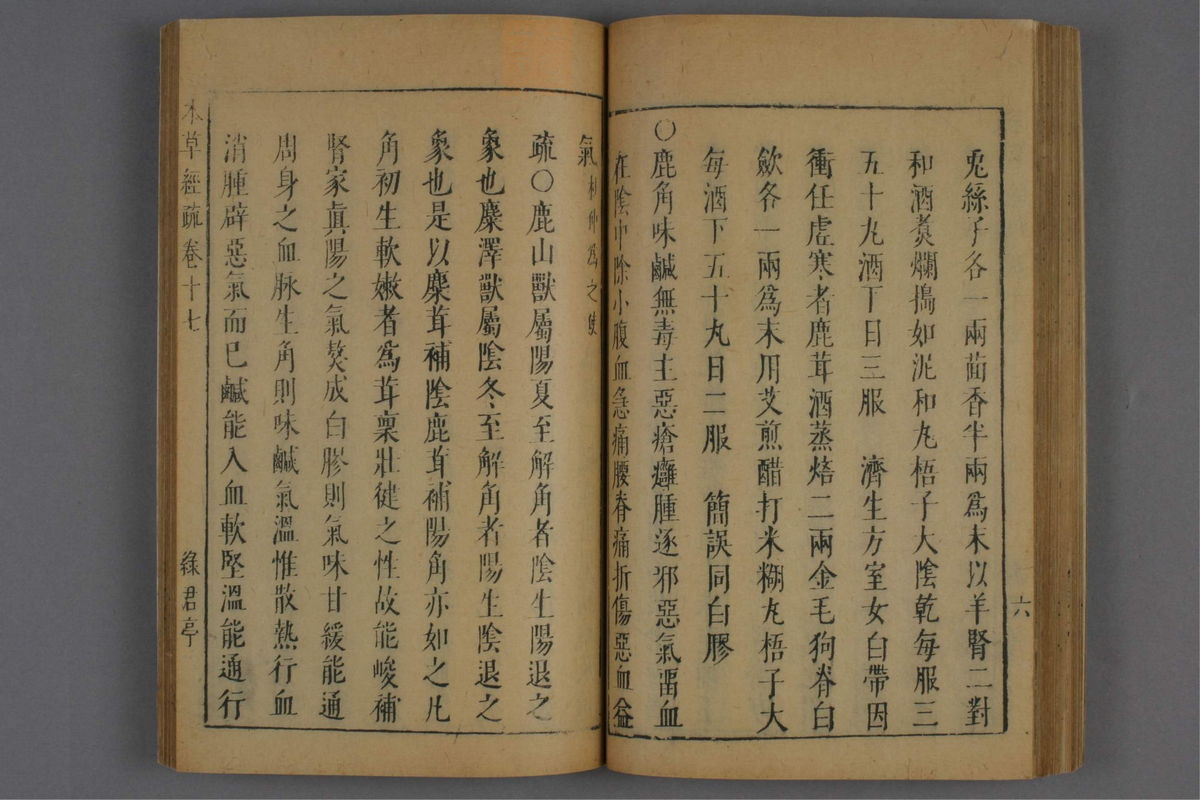 兎絲子各一兩茴香半兩爲末以羊腎二對
和酒煑爛搗如泥和丸梧子大陰乾每服三
五十丸酒下日三服　濟生方室女白帶因
衝任虛寒者鹿茸酒蒸焙二兩金毛狗脊白
歛各一兩爲末用艾煎醋打米糊丸梧子大
每酒下五十丸日二服　簡誤同白膠
〇鹿角味鹹無毒主惡瘡癰腫逐邪惡氣畱血
在陰中除小腹血急痛腰脊痛折傷惡血益
六
氣杜仲爲之使
疏〇鹿山獸屬陽夏至解角者陰生陽退之
象也麋澤獸屬陰冬至解角者陽生陰退之
象也是以麋茸補陰鹿茸補陽角亦如之凡
角初生軟嫩者爲茸稟壯健之性故能峻補
腎家眞陽之氣熬成白膠則氣味甘緩能通
周身之血脉生角則味鹹氣溫惟散熱行血
消腫辟惡氣而已鹹能入血軟堅溫能通行
本草經疏卷十七
綠君亭